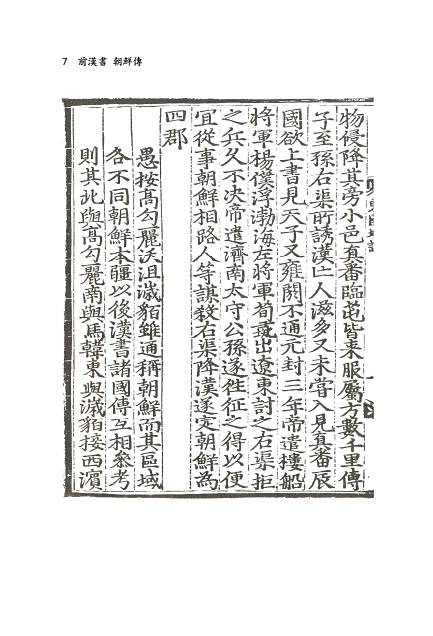 7 前漢書 朝鮮傳
物侵降其旁小邑真番臨芚皆来服屬方數千里傳
子至孫右渠所誘漢亡人滋多又未嘗入見真番辰
國欲上書見天子又雍閼不通元封三年帝遣樓船
將軍楊僕浮渤海左將軍荀彘出遼東討之右渠拒
之兵久不決帝遣濟南太守公孫遂徃征之得以便
冝從事朝鮮相路人等謀殺右渠降漢遂定朝鮮為
四郡
愚按髙勾麗沃沮濊貊雖通稱朝鮮而其區域
各不同朝鮮本疆以後漢書諸國傳互相叅考
則其北與髙勾麗南與馬韓東與濊貊接西濱